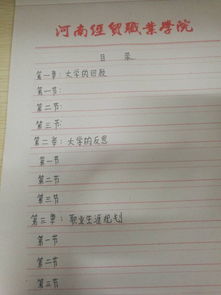 河南经贸职业学院
目 录
第一章：大学的目标
第一节：
第二节：
第三节：
第二章：大学的反思
第一节
第二节
第三节
第三章：职业生涯规划
第一节
第二节
第三节